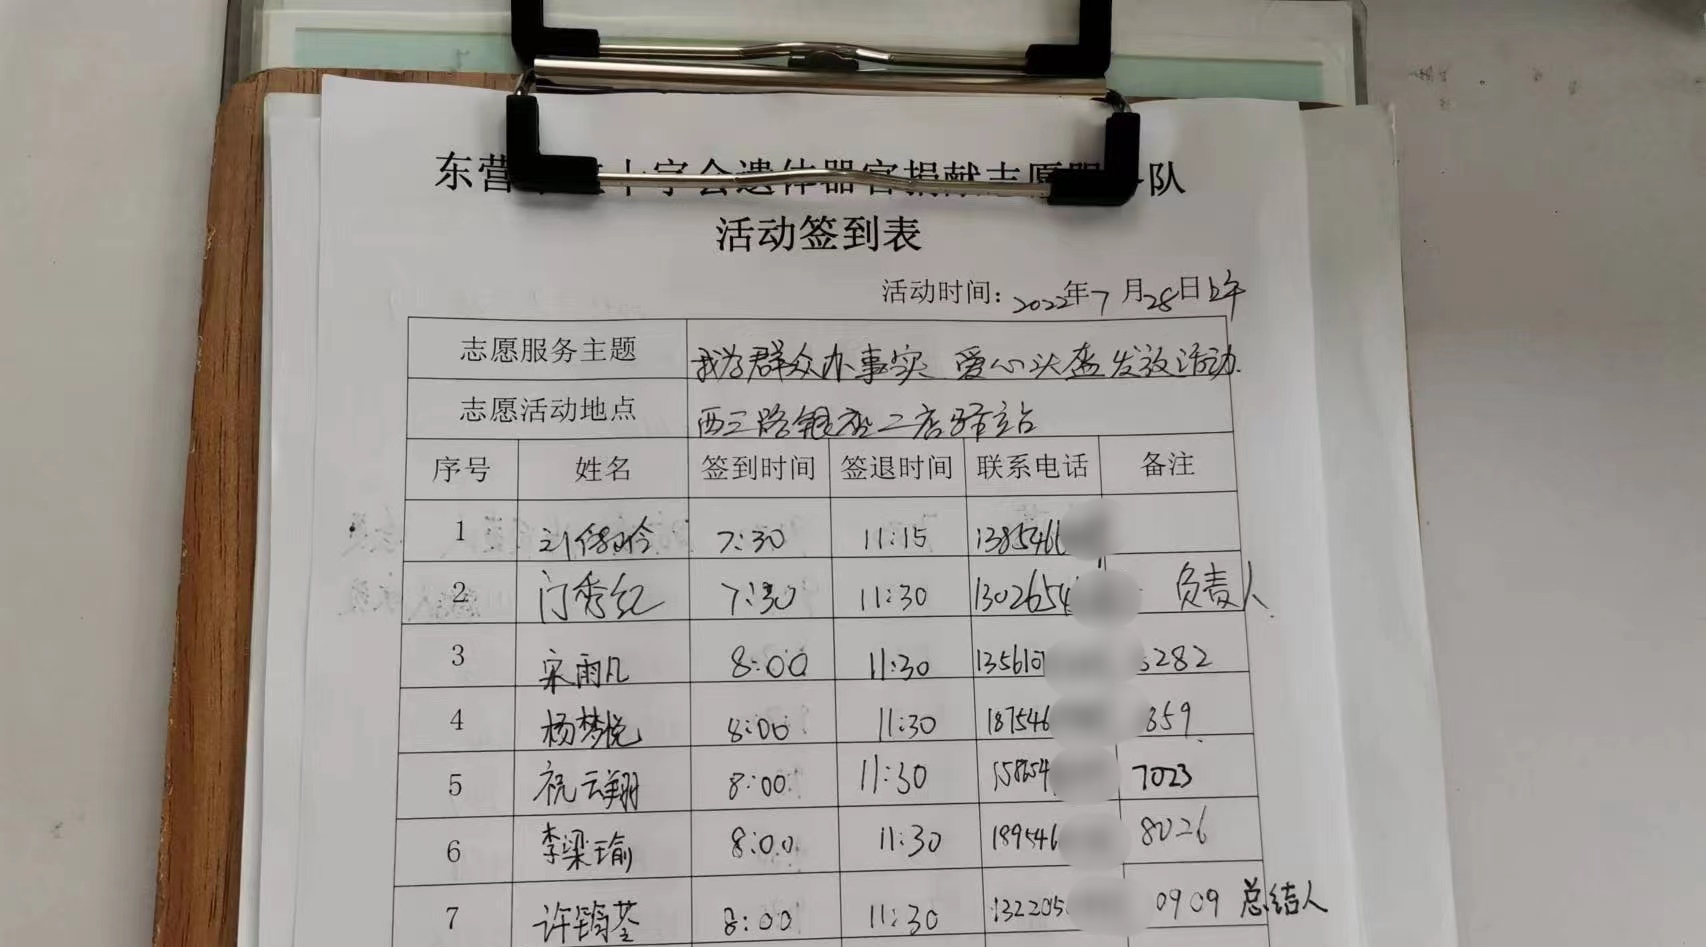 东营 十字会遗体器官捐献志愿服 队
活动签到表
活动时间：2022年7月28日上午
志愿服务主题 我为群众办事实 爱心头盔发放活动.
志愿活动地点 西三路银座二店驿站
序号 姓名 签到时间 签退时间 联系电话 备注
1 7:30 11:15 1385466
2 门秀红 7:30 11:30 1302654 负责人
3 宋雨凡 8:00 11:30 135610 282
4 杨梦悦 8:00 11:30 187546 359
5 祝云翔 8:00 11:30 158654 7023
6 李梁瑜 8:00 11:30 189546 8026
7 许筠荃 8:00 11:30 132205 0909 总结人